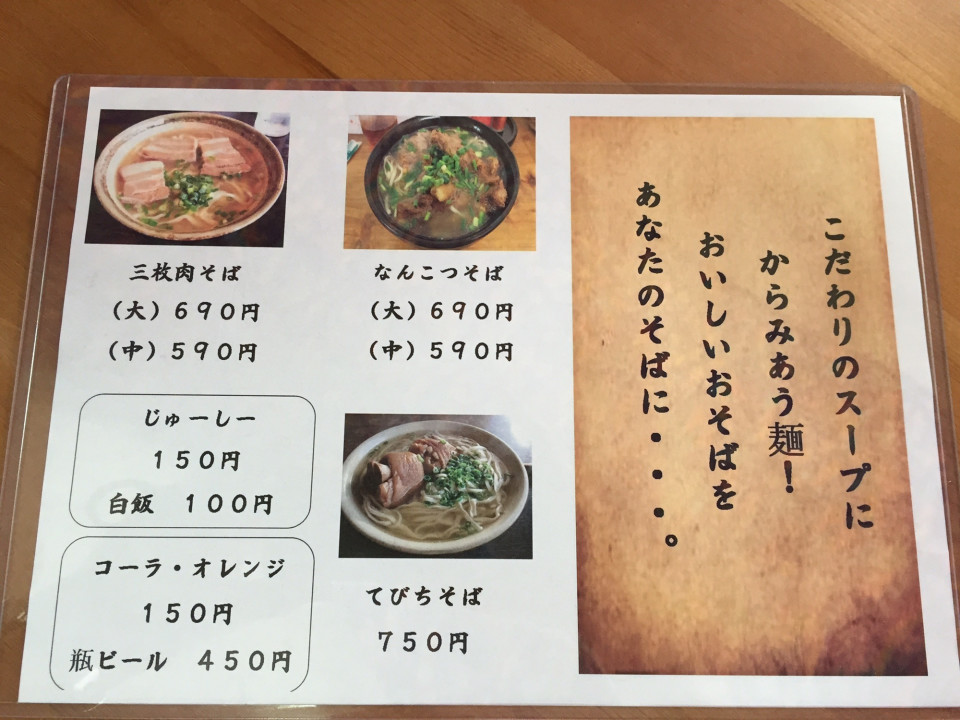 三枚肉そば
（大）６９０円
（中）５９０円
なんこつそば
（大）６９０円
（中）５９０円
じゅーしー
１５０円
白飯　１００円
コーラ・オレンジ
１５０円
瓶ビール　４５０円
てびちそば
７５０円
こだわりのスープに
からみあう麺！
おいしいおそばを
あなたのそばに・・・・。